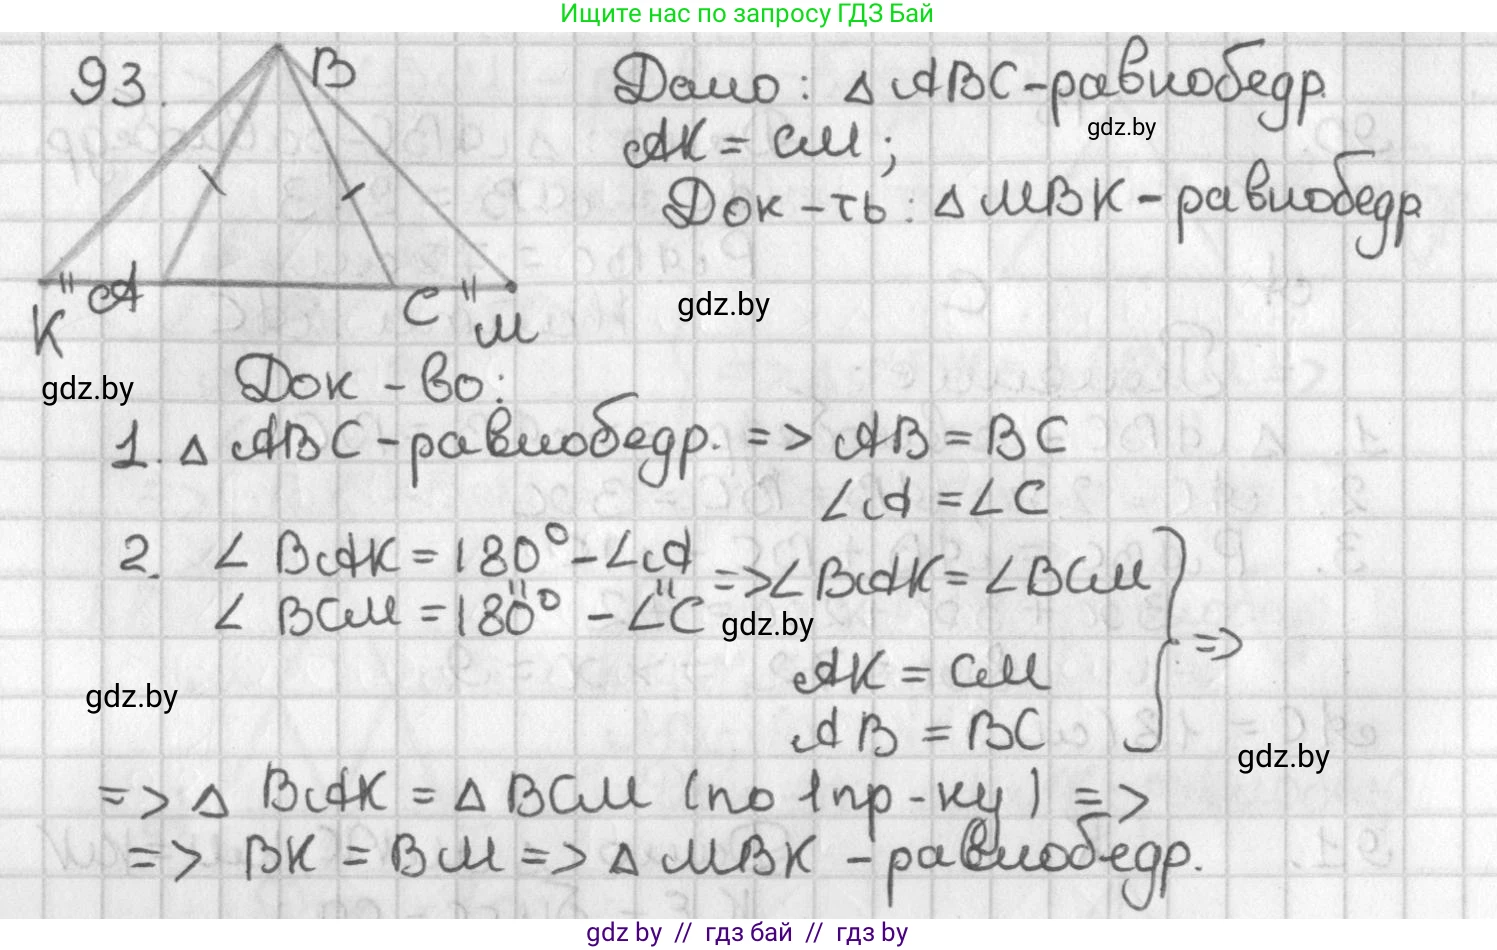 Ищите нас по запросу ГДЗ Бай
93.
B
Дано: △ ABC - равнобедр.
gdz.by
AK = CM;
Док-ть: △ MBK - равнобедр
gdz.by
K " A C " M
gdz.by
Док-во:
1. △ ABC - равнобедр. => AB = BC
∠A = ∠C
2. ∠BAK = 180° - ∠A
" "
∠BCM = 180° - ∠C
=> ∠BAK = ∠BCM
gdz.by
AK = CM
AB = BC
} =>
gdz.by
gdz.by
=> △ BAK = △ BCM (по 1 пр-ку) =>
=> BK = BM => △ MBK - равнобедр.
gdz by // гдз бай // гдз by